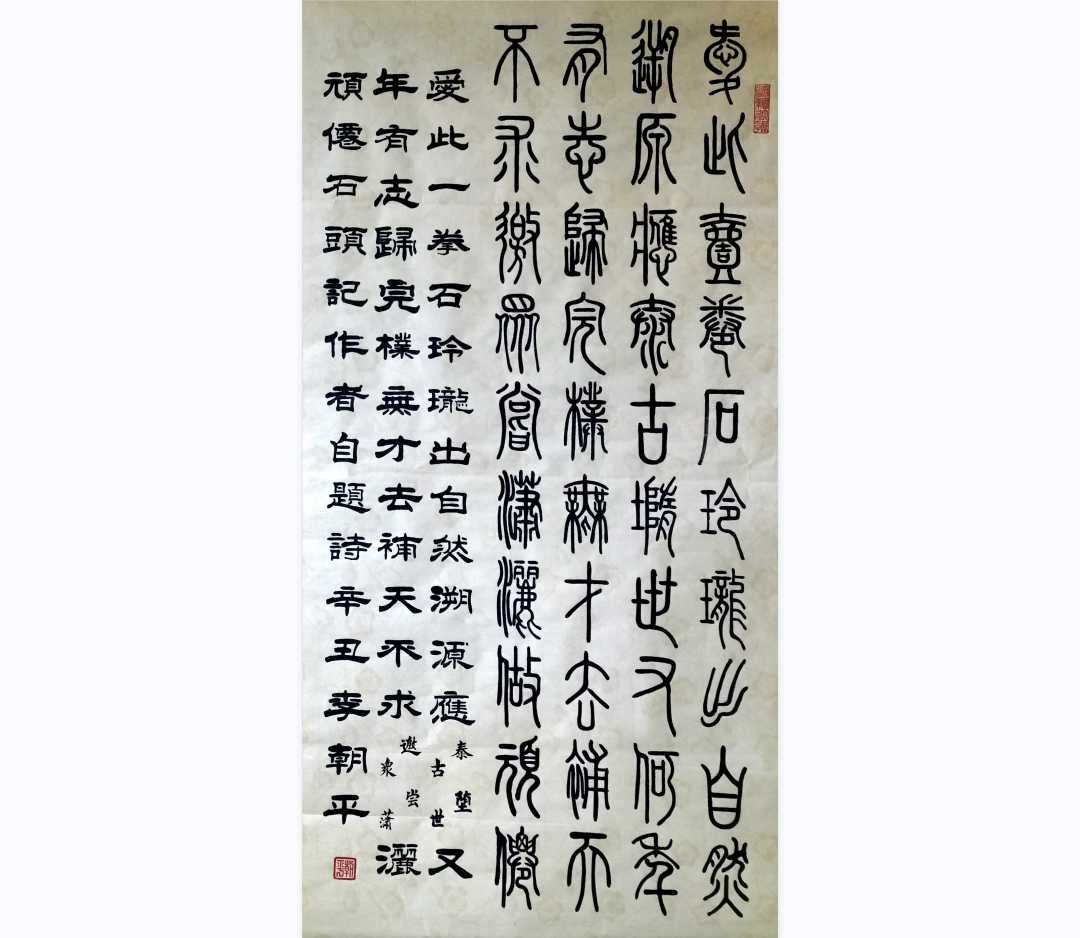 愛此壹拳石玲瓏出自然
遡原應泰古墮世又何年
有志歸完樸無才去補天
不求邀眾嘗瀟灑做頑僊
愛此一拳石玲瓏出自然溯源應泰古墮世又
年有志歸完樸無才去補天不求邀眾嘗瀟灑
頑僊石頭記作者自題詩辛丑李朝平